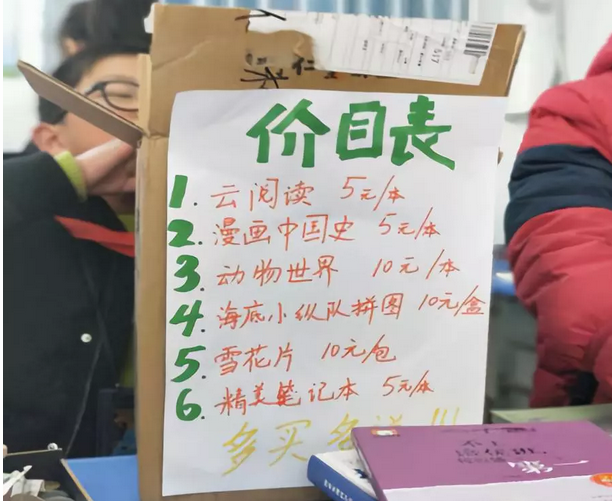 价目表
1. 云阅读 5元/本
2. 漫画中国史 5元/本
3. 动物世界 10元/本
4. 海底小纵队拼图 10元/盒
5. 雪花片 10元/包
6. 精美笔记本 5元/本
多买多送!!!
第一